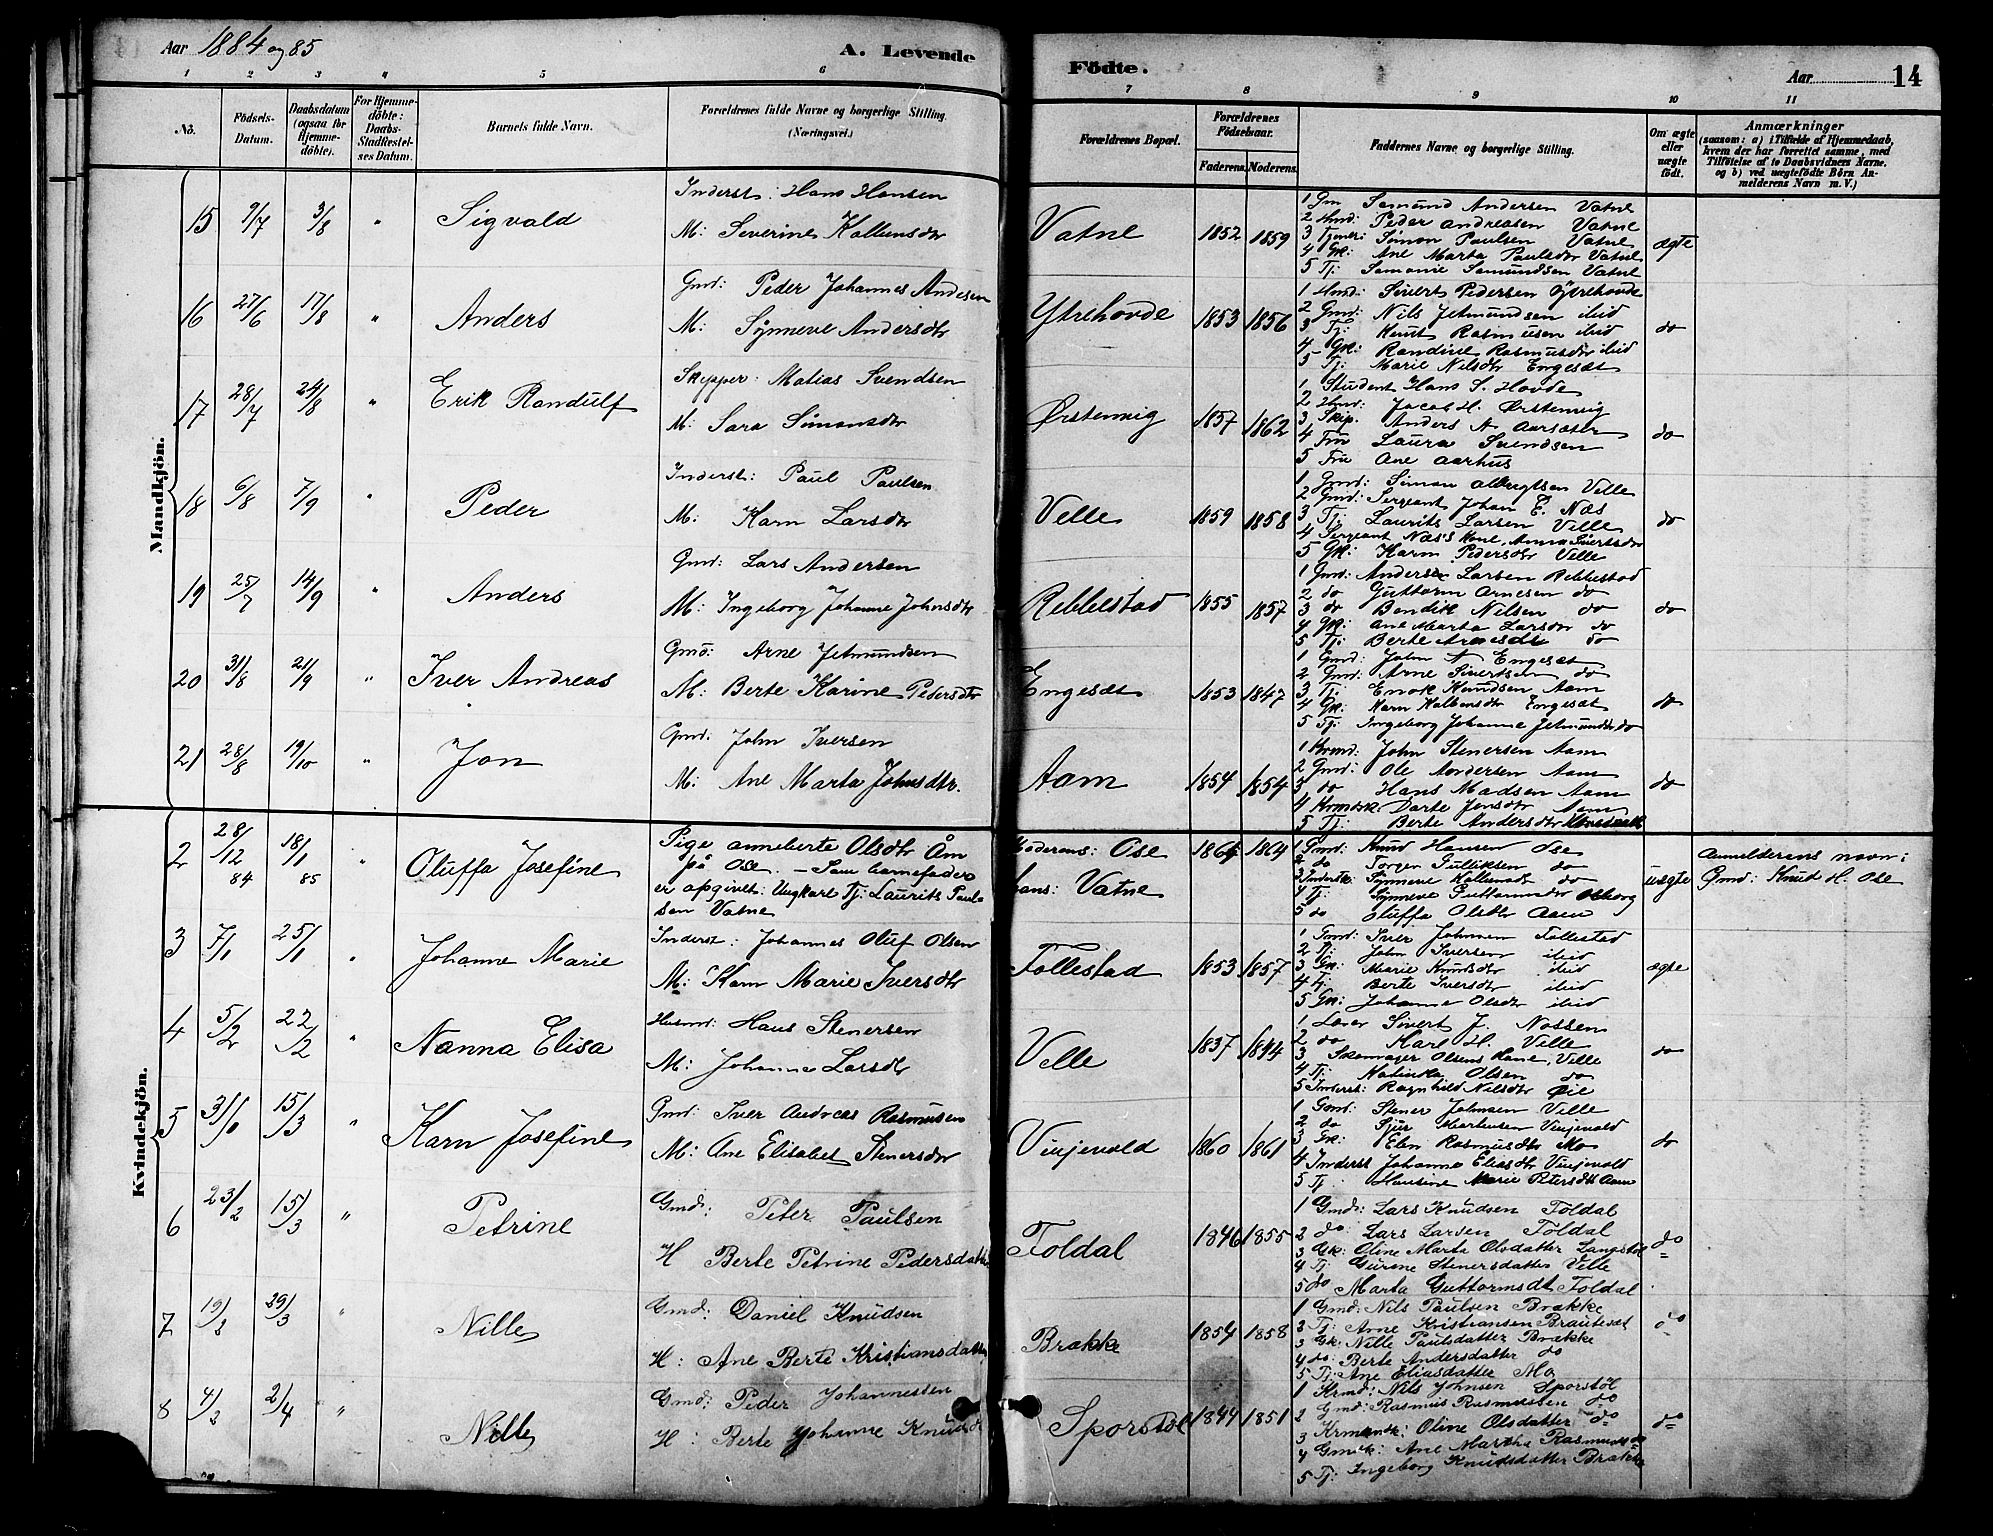 Aar 1884 og 85
A. Levende
Födte.
Aar
14
1 2 3 4 5 6 7 8 9 10 11
No.
Födsels-Datum.
Daabsdatum (ogsaa for Hjemme-döbte).
For Hjemme-döbte: Daabs-Stadfæstelses Datum.
Barnets fulde Navn.
Forældrenes fulde Navne og borgerlige Stilling. (Næringsvei.)
Forældrenes Bopæl.
Forældrenes Födselsaar.
Faderens. Moderens.
Faddernes Navne og borgerlige Stilling.
Om ægte eller uægte födt.
Anmærkninger
(saasom: a) i Tilfælde af Hjemmedaab, hvem der har forrettet samme, med Tilföielse af to Daabsvidners Navne, og b) ved uægtefödte Börn Anmelderens Navn m. V.)
Mandkjön.
15 9/7 3/8 " Sigvald
Inderst: Hans Hansen
M: Severine Kolbensdtr
Vatne 1852 1859
1 Gm Samund Andersen Vatne
2 Hmd: Peder Andreasen Vatne
3 Tjener: Simon Paulsen Vatne
4 Gk: Ane Marta Paulsdtr Vatne
5 Tj: Samonie Samundsen Vatne
ægte
16 27/6 17/8 " Anders
Gmd: Peder Johannes Andesen
M: Synneve Andersdtr
Ytrehovde 1853 1856
1 Hmd: Sivert Pedersen Ytrehovde
2 Gmd: Nils Jetmundsen ibid
3 Tj: Knut Rasmusen ibid
4 Gk: Randine Rasmusdtr ibid
5 Tj: Marie Nilsdtr Engesæt
do
17 28/7 24/8 " Erik Randulf
Skipper: Matias Svendsen
M: Sara Simonsdtr
Ørstenvig 1857 1862
1 Student Hans S. Hovde
2 Hmd: Jacob H. Ørstenvig
3 Skip. Anders A. Aarsæter
4 Fru Laura Svendsen
5 Fru Ane Aarhus
do
18 6/8 7/9 " Peder
Inderst: Paul Paulsen
M: Karn Larsdtr
Velle 1859 1858
1 Gmd: Simon Albregtsen Velle
2 Gmd: Sergeant Johan E. Næs
3 Tj: Laurits Larsen Velle
4 Sergeant Næs's Kone, Anna Sivertsdtr
5 Gk: Karn Pedersdtr Velle
do
19 25/7 14/9 " Anders
Gmd: Lars Andersen
M: Ingeborg Johanne Johnsdtr
Rebbestad 1855 1857
1 Gmd: Anders Larsen Rebbestad
2 do Guttorm Arnesen do
3 do Bendik Nilsen do
4 Gk: Ane Marta Larsdtr do
5 Tj: Berte Arnesdtr do
do
20 31/8 21/9 " Iver Andreas
Gmd: Arne Jetmundsen
M: Berte Karine Pedersdtr
Engesæt 1853 1847
1 Gmd: John A Engesæt
2 Gmd: Arne Sivertsen do
3 Tj: Enok Knudsen Aam
4 Gk: Karn Kolbensdtr Engesæt
5 Tj: Ingeborg Johanne Jetmundsdtr do
do
21 28/8 19/10 " Jon
Gmd: John Iversen
M: Ane Marta Johnsdtr.
Aam 1854 1854
1 Krmd: John Stenersen Aam
2 Gmd: Ole Andersen Aam
3 do Hans Madsen Aam
4 Krmdsk: Dorte Jensdtr Aam
5 Tj: Berte Andersdtr
do
Kvindekjön.
2 28/12 84 18/1 85 " Oluffa Josefine
Pige anneberte Olsdtr Åm
på Ose. – Som barnefader
er opgivet: Ungkarl Tj: Laurits Paul-
sen Vatne
Moderens: Ose
hans: Vatne
1864 1864
1 Gmd: Knud Hansen Ose
2 do Torger Gulliksen do
3 Inderstk: Synneve do
4 Tj: Synneve Guttormsdtr
5 do Oluffa Olsdtr Aam
uægte
Anmelderens navn:
Gmd: Knud H. Ose
3 7/1 25/1 " Johanne Marie
Inderst: Johannes Oluf Olsen
M: Karn Marie Iversdtr
Follestad 1853 1857
1 Gmd: Iver Johnsen Follestad
2 Tj: John Iversen ibid
3 Gk: Marie Knudsdtr ibid
4 Tj: Berte Iversdtr ibid
5 Gk: Johanne Olsdtr ibid
ægte
4 5/2 22/2 " Nanna Elisa
Husmd: Hans Stenersen
M: Johanne Larsdtr
Velle 1837 1844
1 Lærer Sivert J. Nossen
2 do Karl H. Velle
3 Skomager Olsens Kone, Velle
4 Tj: Olsen do
5 Inderst: Ragnhild Nilsdtr Øie
do
5 31/10 15/3 " Karn Josefine
Gmd: Iver Andreas Rasmusen
M: Ane Elisabet Stenersdtr
Vinjevold 1860 1861
1 Gmd: Stener Johnsen Velle
2 do Sjur Vinjevold
3 Gk: Elen Rasmusdtr Mo
4 Inderst Johanne Eliasdtr Vinjevold
5 Tj Marie Aam
do
6 23/2 15/3 " Petrine
Gmd: Peter Paulsen
H Berte Petrine Pedersdatter
Foldal 1846 1855
1 Gmd: Lars Knudsen Foldal
2 do Lars Larsen Foldal
3 Gk: Oline Marta Olsdatter Langstøl
4 Tj: Gurine Stenersdatter Velle
5 do Marta Guttormsdt Foldal
do
7 19/3 29/3 " Nille
Gmd: Daniel Knudsen
H: Ane Berte Kristiansdatter
Brække 1854 1858
1 Gmd: Nils Paulsen Brække
2 Tj: Arne Kristiansen Brautesæt
3 Gk: Nille Paulsdatter Brække
4 do: Berte Andersdatter do
5 Tj: Ane Eliasdatter Mo
do
8 4/3 2/4 " Nille
Gmd: Peder Johannessen
H: Berte Johanne Knudsd
Sporstøl 1844 1851
1 Krmd: Nils Johnsen Sporstøl
2 Gmd: Rasmus Rasmussen do
3 Krmandsk: Oline Olsdatter do
4 Gmdk: Ane Martha Rasmusdt do
5 Tj: Ingeborg Knudsdatter Brække
do